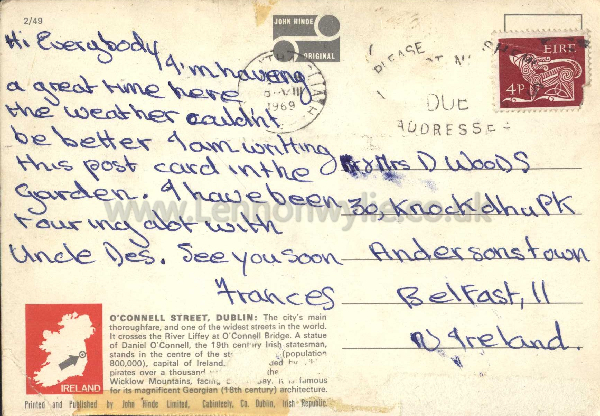 2/49
JOHN HINDE
ORIGINAL
1969
PLEASE
DUE
ADDRESSE
EIRE
4P
Hi Everybody
I'm having
a great time here
the weather couldn't
be better I am writing
this post card in the
garden. I have been
touring alot with
Uncle Des. See you soon
Frances
Mrs D WOODS
30, Knockdhu PK
Andersonstown
Belfast, 11
N Ireland.
www.Lennonwylie.co.uk
O'CONNELL STREET, DUBLIN: The city's main
thoroughfare, and one of the widest streets in the world.
It crosses the River Liffey at O'Connell Bridge. A statue
of Daniel O'Connell, the 19th century Irish statesman,
stands in the centre of the (population
800,000), capital of Ireland, by
pirates over a thousand the
Wicklow Mountains, facing It is famous
for its magnificent Georgian (18th century) architecture.
IRELAND
Printed and Published by John Hinde Limited, Cabinteely, Co. Dublin, Irish Republic.